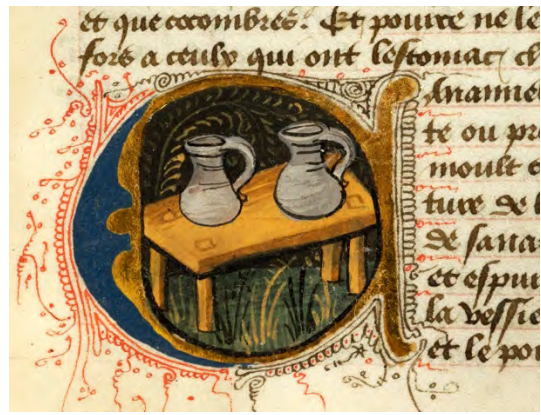 et que cocombres. Et pource ne le
fors a ceulx qui ont lestomac ch
te ou pr
moult c
ture de l
de
et espur
la vessie
et le pou